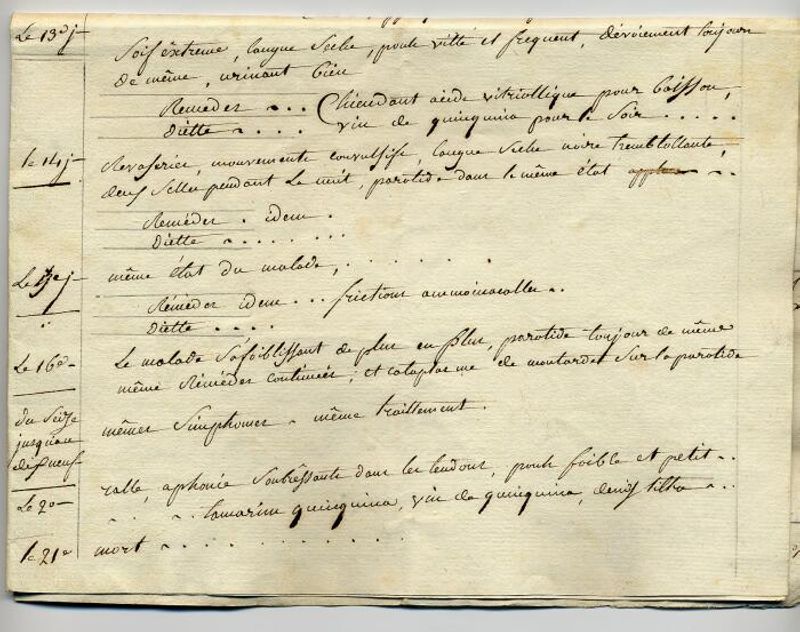 Le 13e j
Soif extreme, langue seche, pouls vitte et frequent, devoiement toujours
de même, urinant bien
Remedes . . . Chiendant acide vitriollique pour boisson,
Diette . . . . vin de quinquina pour le soir . . . . .
le 14 j
Revasseries, mouvements convulsifs, langue seche noire tremblottante,
deux selles pendant la nuit, parotide dans le même état
Remédes . idem .
Diette . . . . . . . .
Le 15e j
même état du malade, . . . . . .
Rémédes idem . . . frictions ammoniacalles . .
Diette . . . .
Le 16e
Le malade s'afoiblissant de plus en plus, parotide toujour de même
même Rémédes continués ; et cataplasme de moutardes sur la parotide
du seize
jusquau
dixneuf
mêmes simphomes . même traittement .
ralle, aphonie soubressants dans les tendons, pouls foible et petit . .
Le 20
. . . tamarin quinquina, vin de quinquina,
le 21e
mort . . . . . . . . . .